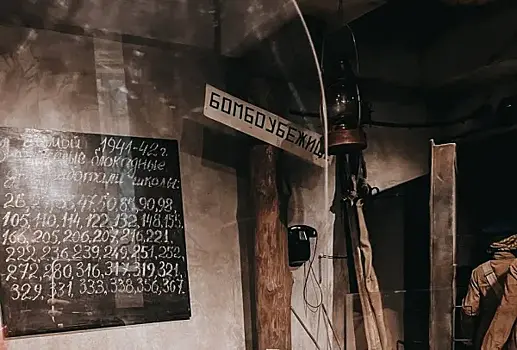 зимой 1941-42 г.
блокадные
работали школы:
87, 90, 98,
105, 110, 114, 122, 132, 148, 155,
166, 205, 206, 207, 216, 221,
228, 236, 239, 249, 251, 252,
272, 280, 316, 317, 319, 321,
329, 331, 333, 338, 356, 367.
БОМБОУБЕЖИЩ